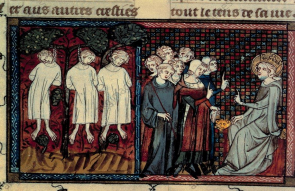 et aus autres celestes
tout le tens de sa vie